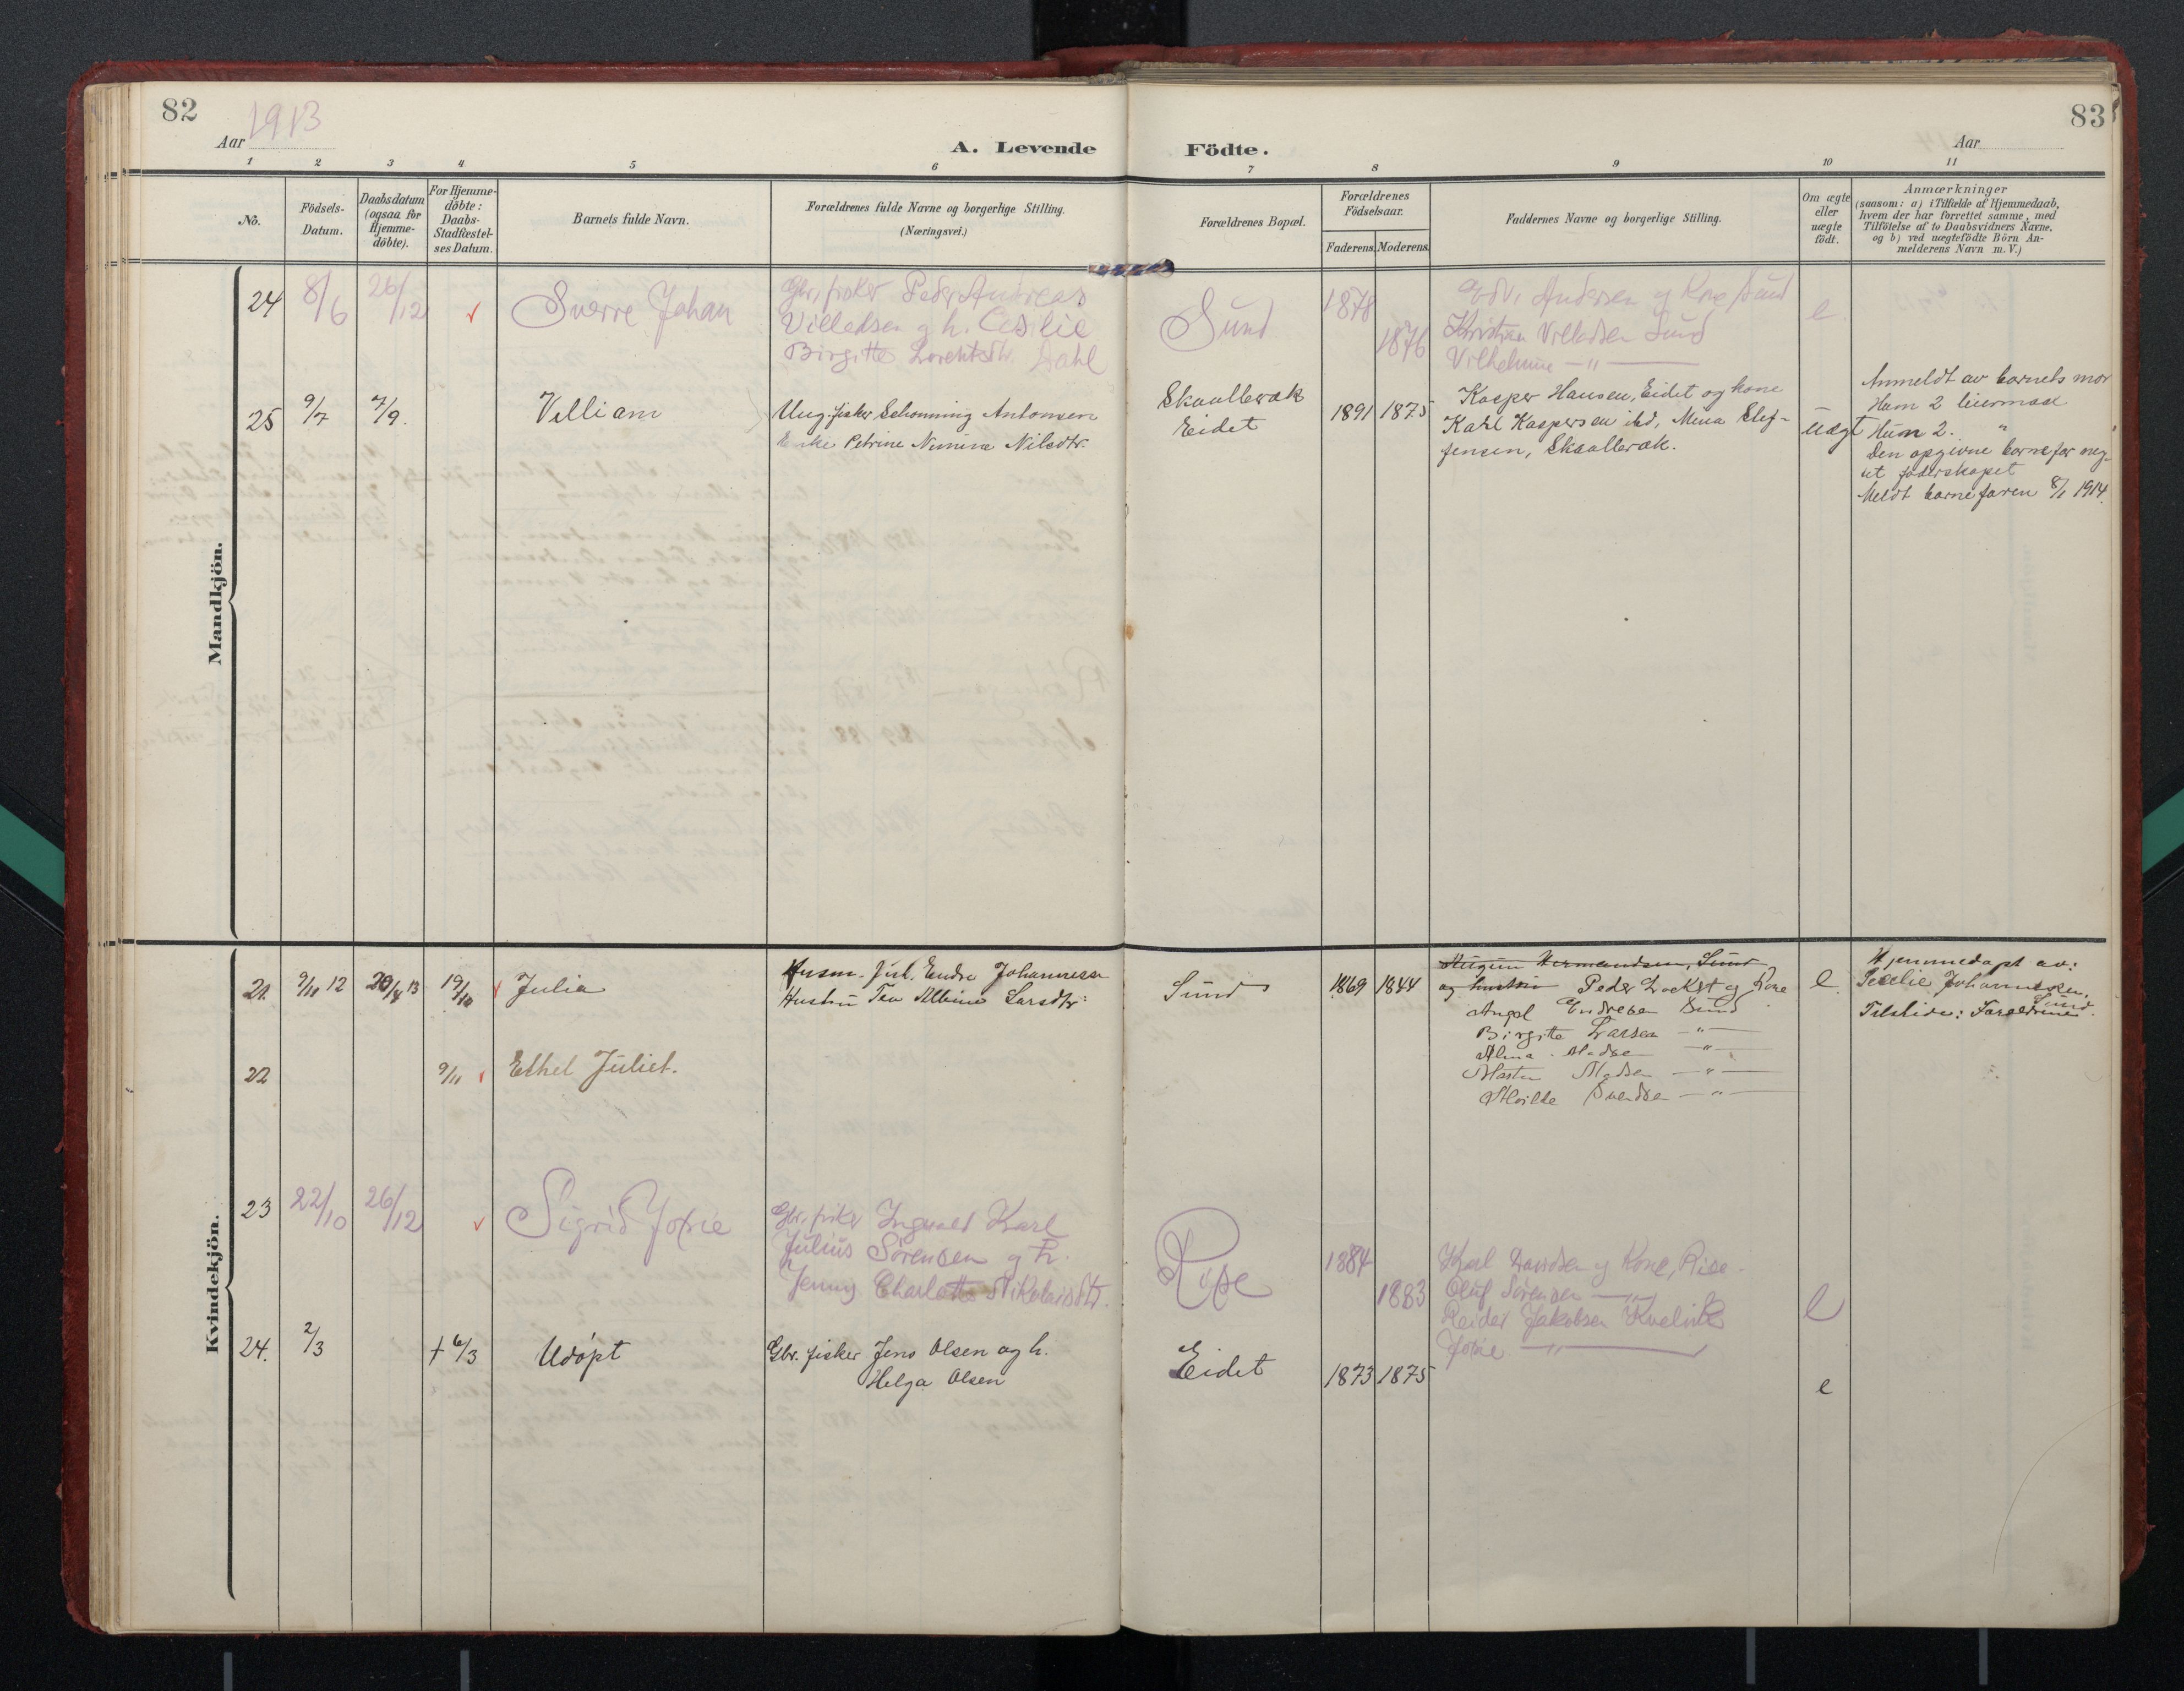 82
Aar 1913
A. Levende
Födte.
Aar
83
1 2 3 4 5 6 7 8 9 10 11
No.
Födsels-
Datum.
Daabsdatum
(ogsaa for
Hjemme-
döbte).
For Hjemme-
döbte:
Daabs-
Stadfæstel-
ses Datum.
Barnets fulde Navn.
Forældrenes fulde Navne og borgerlige Stilling.
(Næringsvei.)
Forældrenes Bopæl.
Forældrenes
Födselsaar.
Faderens. Moderens.
Faddernes Navne og borgerlige Stilling.
Om ægte
eller
uægte
födt.
Anmærkninger
(saasom: a) i Tilfælde af Hjemmedaab,
hvem der har forrettet samme, med
Tilföielse af to Daabsvidners Navne,
og b) ved uægtefödte Börn An-
melderens Navn m.V.)
Mandkjön.
24 8/6 26/12 Sverre Johan
Gbr. fisker Peder Andreas
Villadsen g h. Cesilie
Birgitte Lorentsdtr. Dahl
Sund
1878
1876
Edv. Andersen g Kone Sund
Kristian Villadsen Sund
Vilhelmine — " —
e
25 9/7 7/9. Velliam
Ung. fisker Schonning Antonsen
Enke Petrine Nimina Nilsdtr.
Skaallevæk
Eidet
1891 1875
Kasper Hansen, Eidet og kone
Karl Kaspersen ibd, Mina Elef-
sensen, Skaallevæk.
uægt
Anmeldt av barnets mor
Ham 2 leiermaal
Hun 2. "
Den opgivne barnefar neg-
tet faderskapet
Meldt barnefaren 8/1 1914.
Kvindekjön.
21. 9/11 12 20/4 13 19/10 Julia
Husm. fisk. Endre Johannessen
Hustru Tea Albine Larsdtr:
Sund
1869 1844
Hermandsen, Sund
og hustru Peder Lockst g Kone
Angel Endresen Sund
Birgitte Larsen — " —
Alma Madsen — " —
Marten Madsen — " —
Hilde Svendsen — " —
e.
Hjemmedøpt av:
Cecilie Johannesen,
Sund.
Tilstede: Forældrene
22 9/11 Ethel Juliet.
23 22/10 26/12 Sigrid Josie
Gbr. fisker Ingvald Karl
Julius Sörensen g h.
Jenny Charlotte Nikolaisdtr.
Risse
1884
1883
Karl Davidsen g Kone, Rise.
Oluf Sörensen — " —
Reidar Jakobsen Kvelink
Josie — " —
e
24. 2/3 † 6/3 Udøpt
Gbr. fisker Jens Olsen og h.
Helga Olsen
Eidet
1873 1875
e